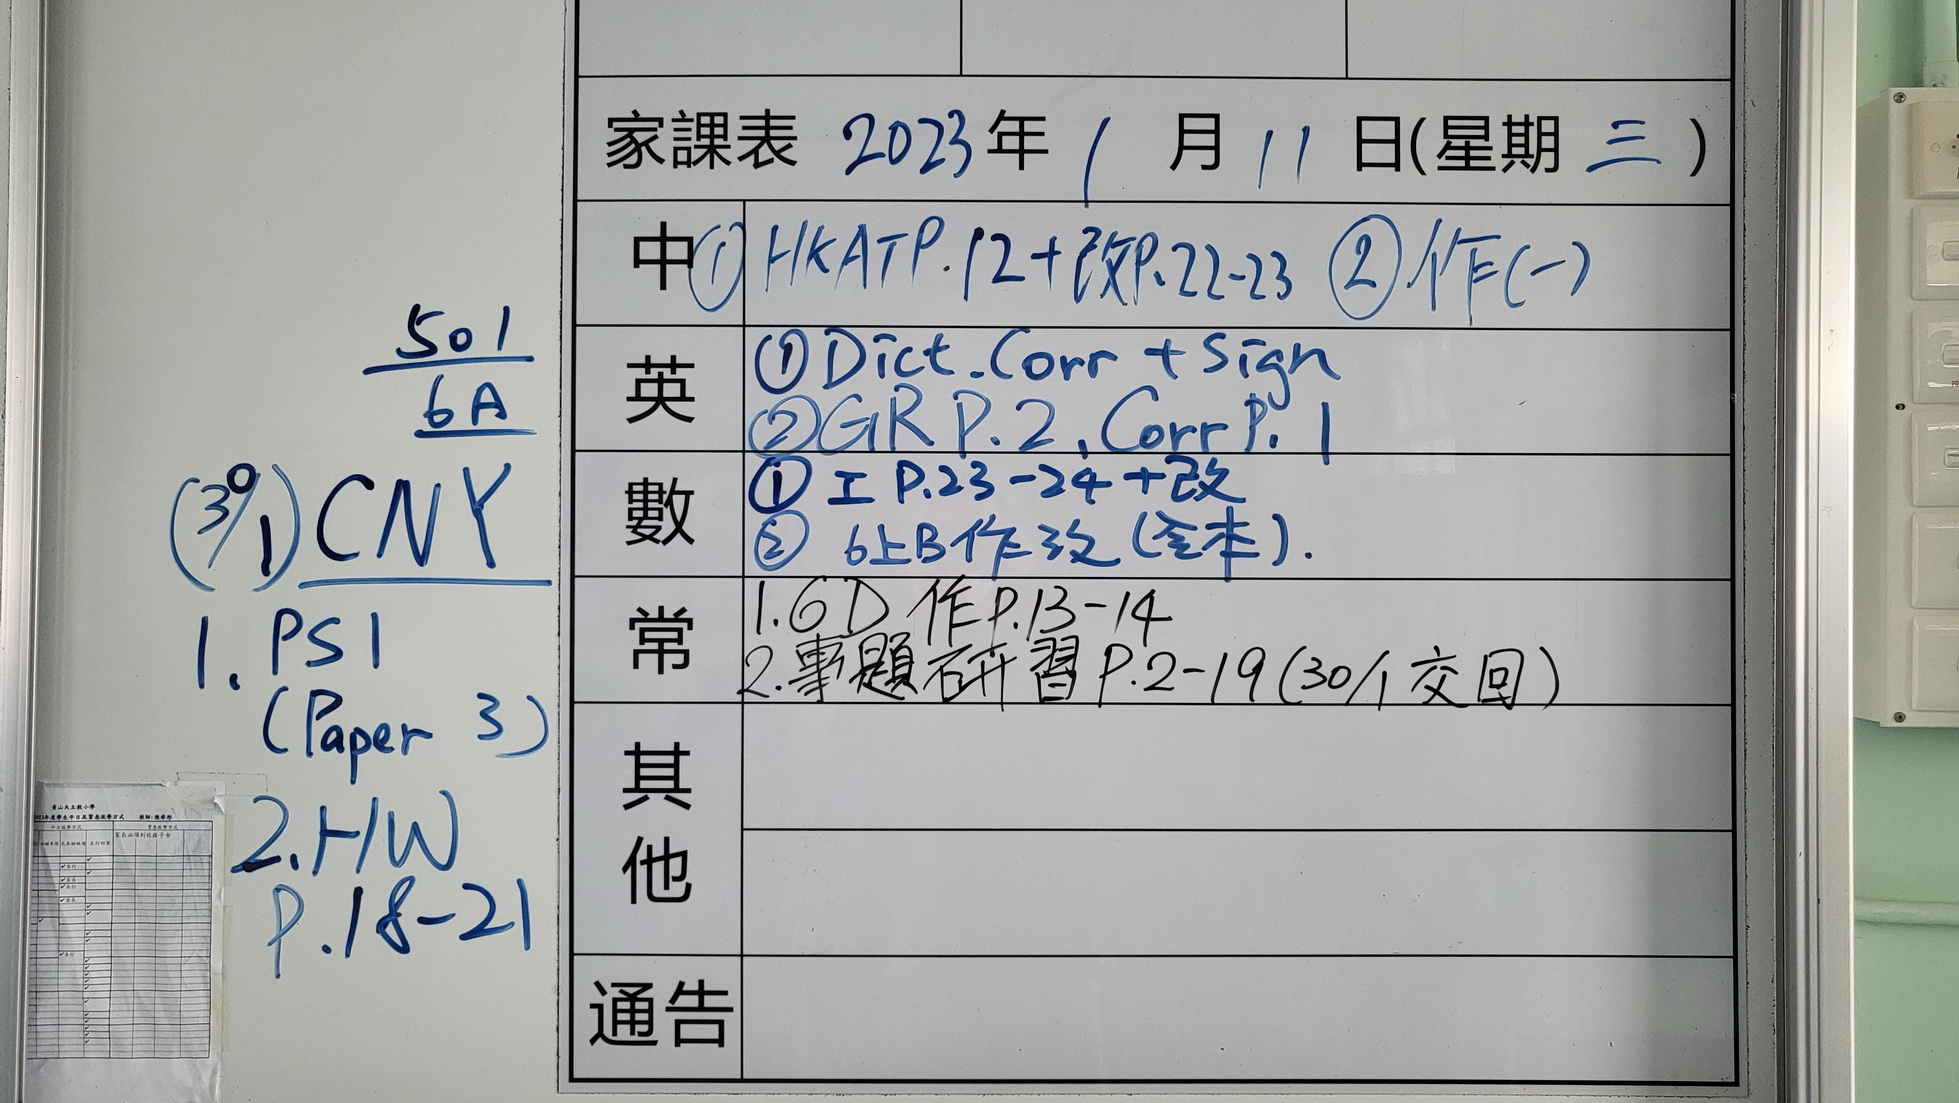 家課表 2023年 1 月 11 日(星期 三 )
中 ① HKAT P.12+改P.22-23 ② 作(一)
英 ① Dict. Corr + Sign
② GR P.2, Corr P.1
數 ① 工 P.23-24 +改
② 6上B作改 (全本).
常 1. 6D 作P.13-14
2. 專題研習 P.2-19 (30/1 交回)
其他
通告
501
6A
(30/1) CNY
1. PS1
(Paper 3)
2. HW
P.18-21
青山天主教小學